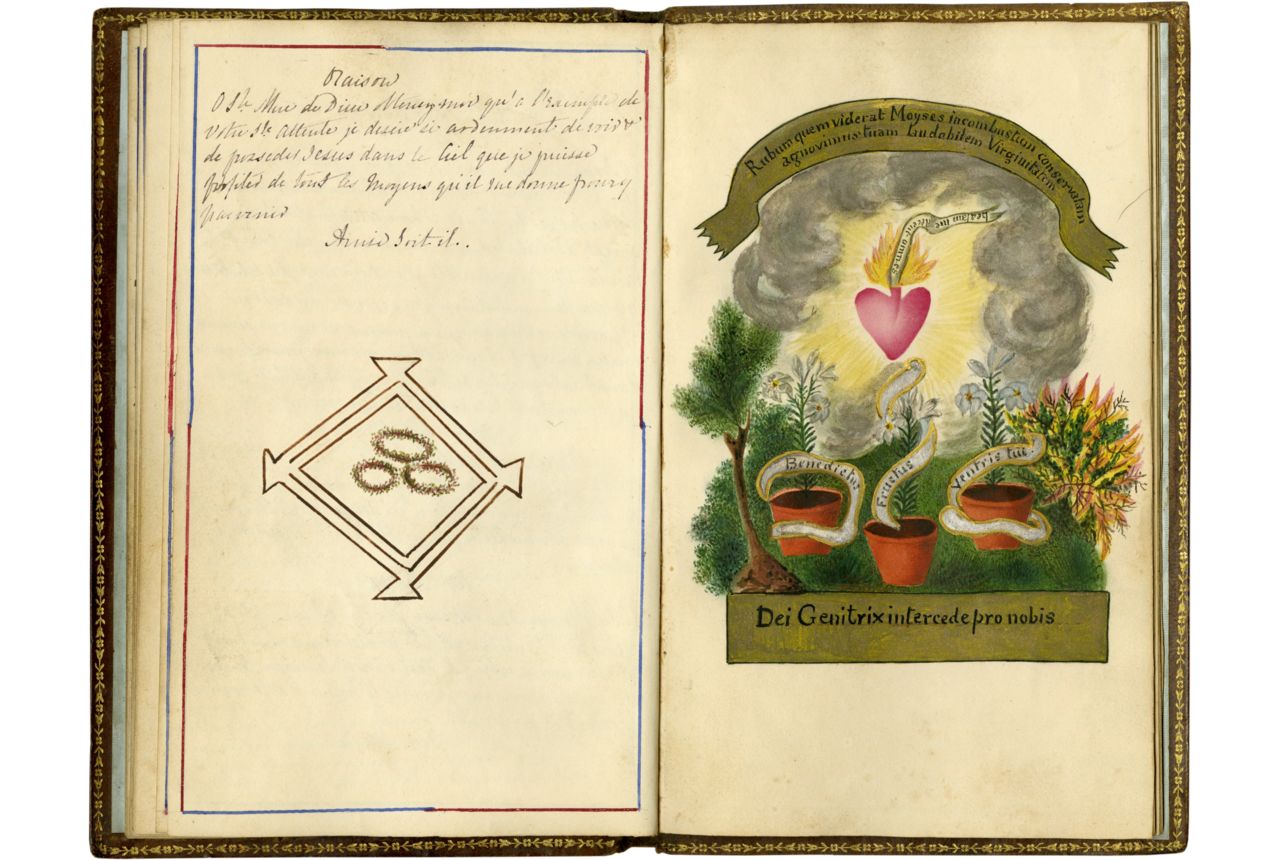 Oraison
O Ste Mere de Dieu obtenez moi qu'a l'exemple de
votre Ste attente je desire si ardemment de voir &
de posseder Jesus dans le Ciel que je puisse
profiter de tout les moyens qu'il me donne pour y
parvenir
Ainsi soit-il..
Rubum quem viderat Moyses incombustum conservatam
agnovimus tuam laudabilem Virginitatem
beatam me
dicent omnes
Benedictus
fructus
Ventris tui.
Dei Genitrix intercede pro nobis